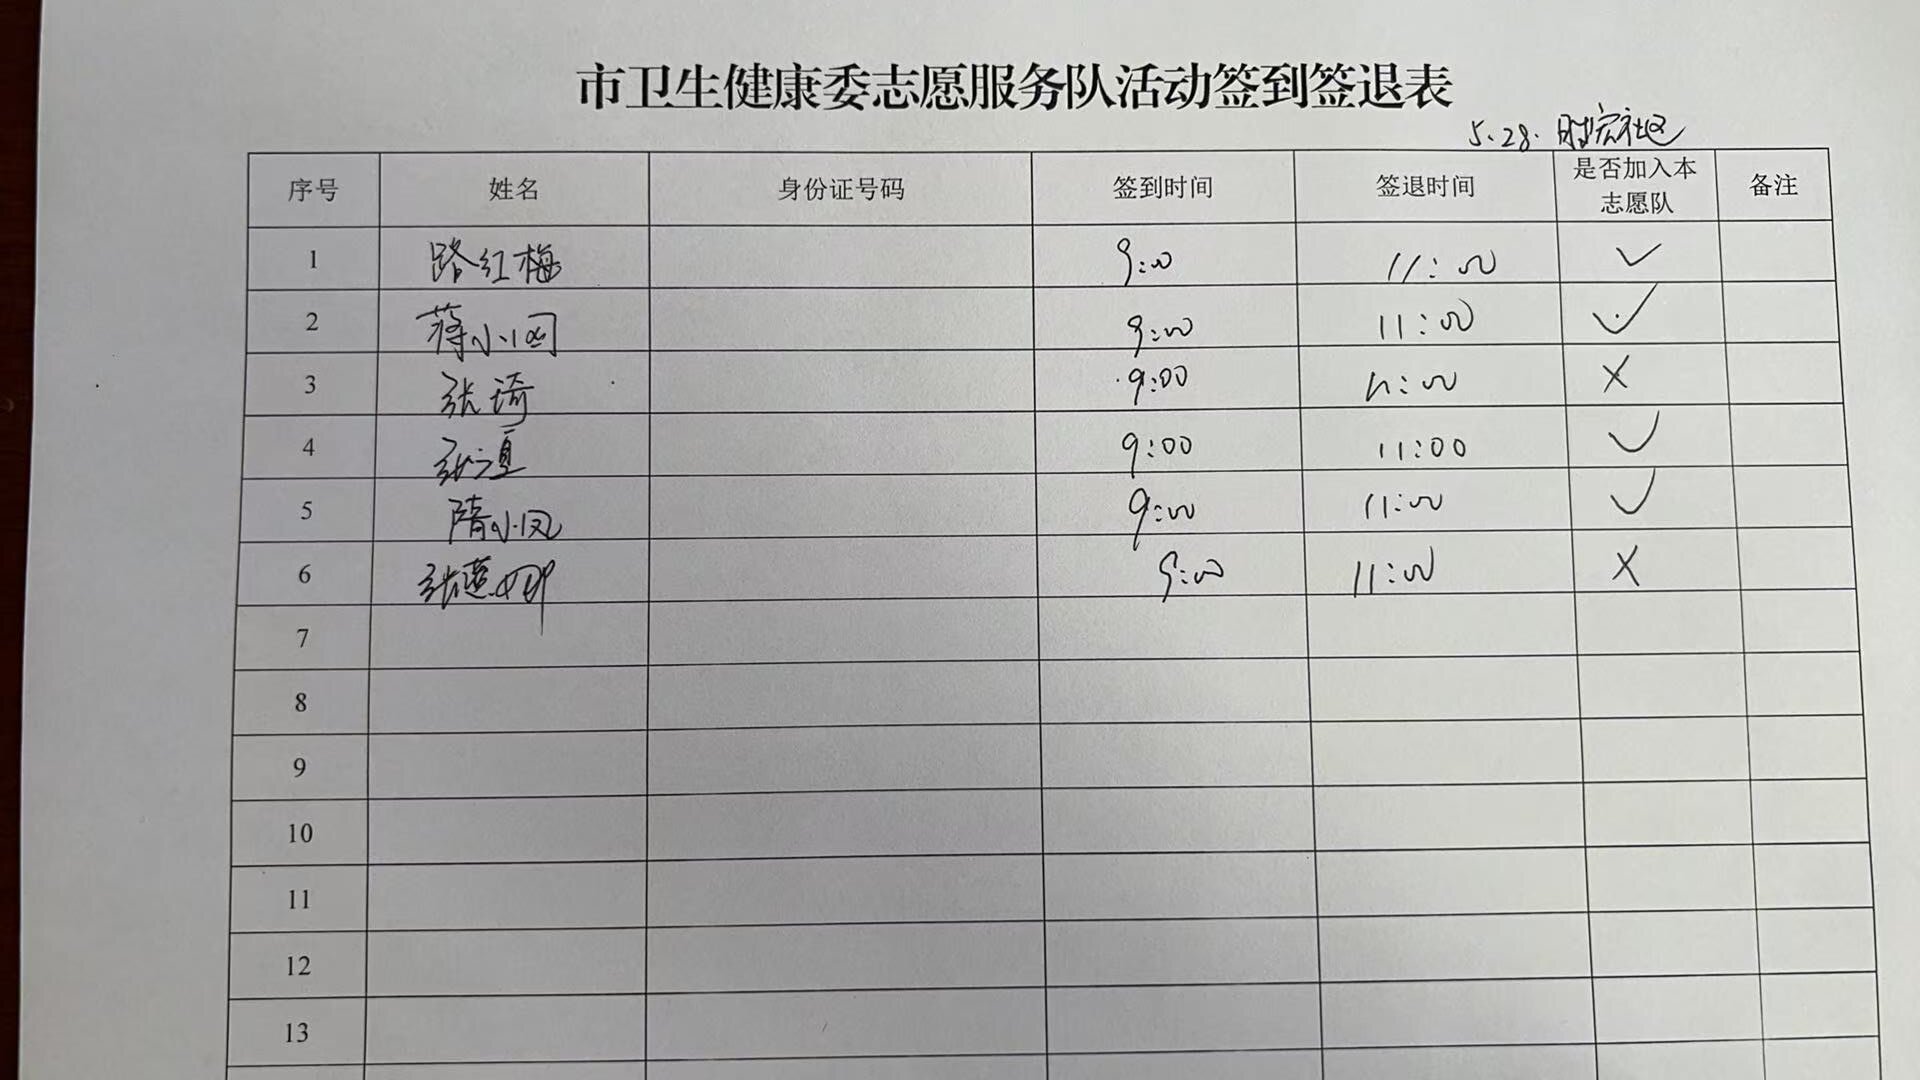 市卫生健康委志愿服务队活动签到签退表
5.28. 时宏社区
序号 姓名 身份证号码 签到时间 签退时间 是否加入本志愿队 备注
1 路红梅 9:00 11:00 ✓
2 蒋小 9:00 11:00 ✓
3 张琦 9:00 11:00 ×
4 张 9:00 11:00 ✓
5 隋小凤 9:00 11:00 ✓
6 张莲娜 9:00 11:00 ×
7
8
9
10
11
12
13